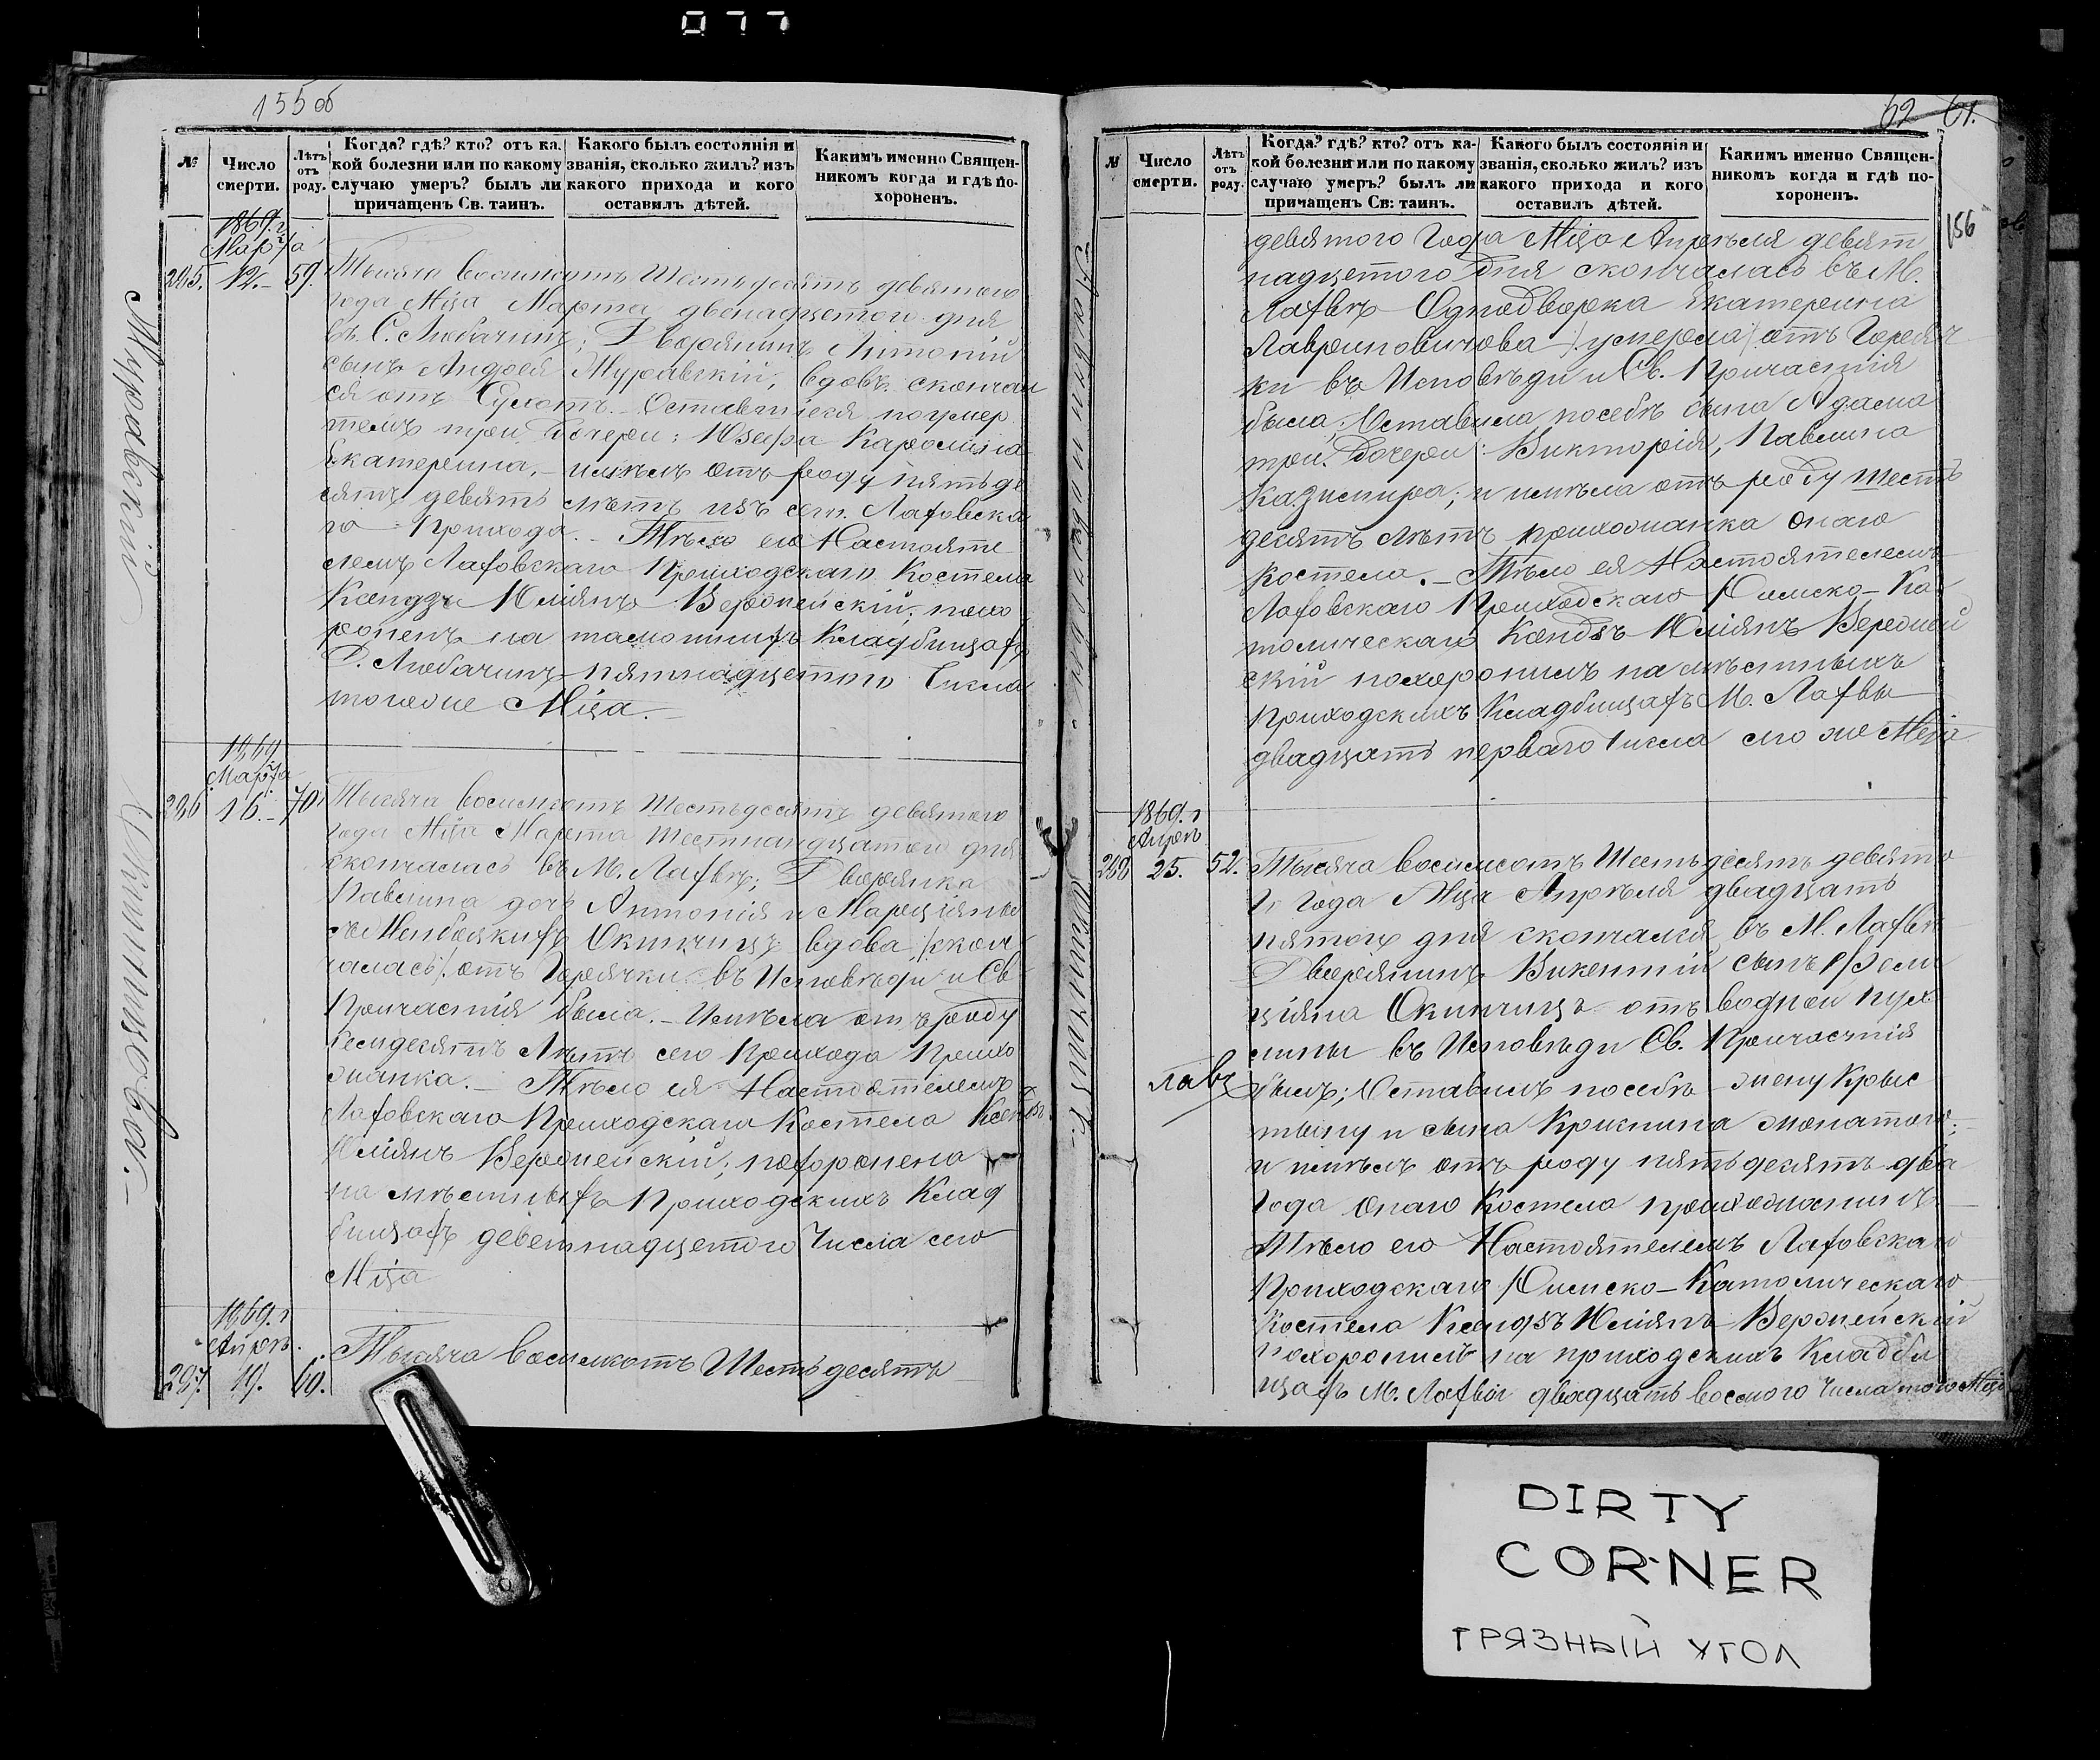 077
155 об
№
Число смерти.
Лѣтъ отъ роду.
Когда? гдѣ? кто? отъ ка-
кой болезни или по какому
случаю умеръ? былъ ли
причащенъ Св. таинъ.
Какого былъ состоянія и
званія, сколько жилъ? изъ
какого прихода и кого
оставилъ дѣтей.
Какимъ именно Священ-
никомъ когда и гдѣ по-
хороненъ.
1869. г
Марта
12. 59.
Тысяча восемьсотъ Шестьдесятъ девятого
года Мца Марта двенадцетого дня
въ С. Любачинѣ; Дворянинъ Антоній
сынъ Андрея Журавскій, вдовъ скончал
ся отъ Сухотъ. Оставшіеся поумер
темъ три Дочери: Юзефа Каролина
Екатерина, имѣлъ отъ роду пятьде
сятъ девять лѣтъ изъ сего Лаховска
го Прихода. Тѣло его Настояте
лемъ Лаховскаго Приходскаго Костела
Ксендзъ Юліянъ Верónейскій, похо
роненъ на тамошнихъ Кладбищахъ
Д. Любачинъ пятнадцетого Числа
тогоже Мца.
Журавскій
1869
Марта
286 16. 70.
Тысяча восемьсотъ Шестьдесятъ девятого
года Мца Марта Шестнандцатого дня
скончалась въ М. Лахвѣ; Дворянка
Павлина дочь Антонія и Марціянны
Окинчицъ вдова /: скон
чалась :/ отъ Горячки въ Исповѣди и Св
Причастія была. Имѣла отъ роду
семдесятъ Лѣтъ сего Прихода Прихо
жанка. Тѣло ея Настоятелемъ
Лаховскаго Приходскаго Костела Ксендзъ
Юліянъ похоронена
на мѣстныхъ Приходскихъ Клад
бищахъ деветнадцетого Числа сего
Мца
1869. г
Апрѣ.
287. 19. 60.
Тысяча восемьсотъ Шестьдесятъ
62 61.
156
№
Число смерти.
Лѣтъ отъ роду.
Когда? гдѣ? кто? отъ ка-
кой болезни или по какому
случаю умеръ? былъ ли
причащенъ Св: таинъ.
Какого былъ состоянія и
званія, сколько жилъ? изъ
какого прихода и кого
оставилъ дѣтей.
Какимъ именно Священ-
никомъ когда и гдѣ по-
хороненъ.
девятого Года Мца Апрѣля девят
надцетого дня скончалась въ М.
Лахвѣ Однодворка Екатерина
Лавриновичова /: умерла :/ отъ Горяч
ки въ Исповѣди и Св. Причастія
была; Оставила посебѣ сына Адама
три Дочери: Викторія, Павлина
Казимира; и имѣла отъ роду шесть
десятъ лѣтъ прихожанка онаго
Костела. Тѣло ея Настоятелемъ
Лаховскаго Приходскаго Римско-Ка
толическаго Ксендзъ Юліянъ
скій похоронилъ на мѣстныхъ
Приходскихъ Кладбищахъ М. Лахвы
двадцать перваго Числа сего же Мца
1869. г
Апрѣ
288 25. 52.
Тысяча восемьсотъ Шестьдесятъ девято
го Года Мца Апрѣля двадцать
пятого дня скончался въ М. Лахвѣ
Дворянинъ Викентій сынъ Фели
ціяна Окинчицъ отъ водной пух
лины въ Исповѣди Св. Причастія
былъ; Оставилъ посебѣ жену Крыс
тыну и сына Криспина женатого;
и имѣлъ отъ роду пятьдесятъ два
Года онаго Костела прихожанинъ
Тѣло его Настоятелемъ Лаховскаго
Приходскаго Римско-Католическаго
Костела Ксендзъ Юліянъ
похоронилъ на приходскихъ Кладби
щахъ М. Лахвы двадцать восмого Числа того Мца
DIRTY
CORNER
ГРЯЗНЫЙ УГОЛ